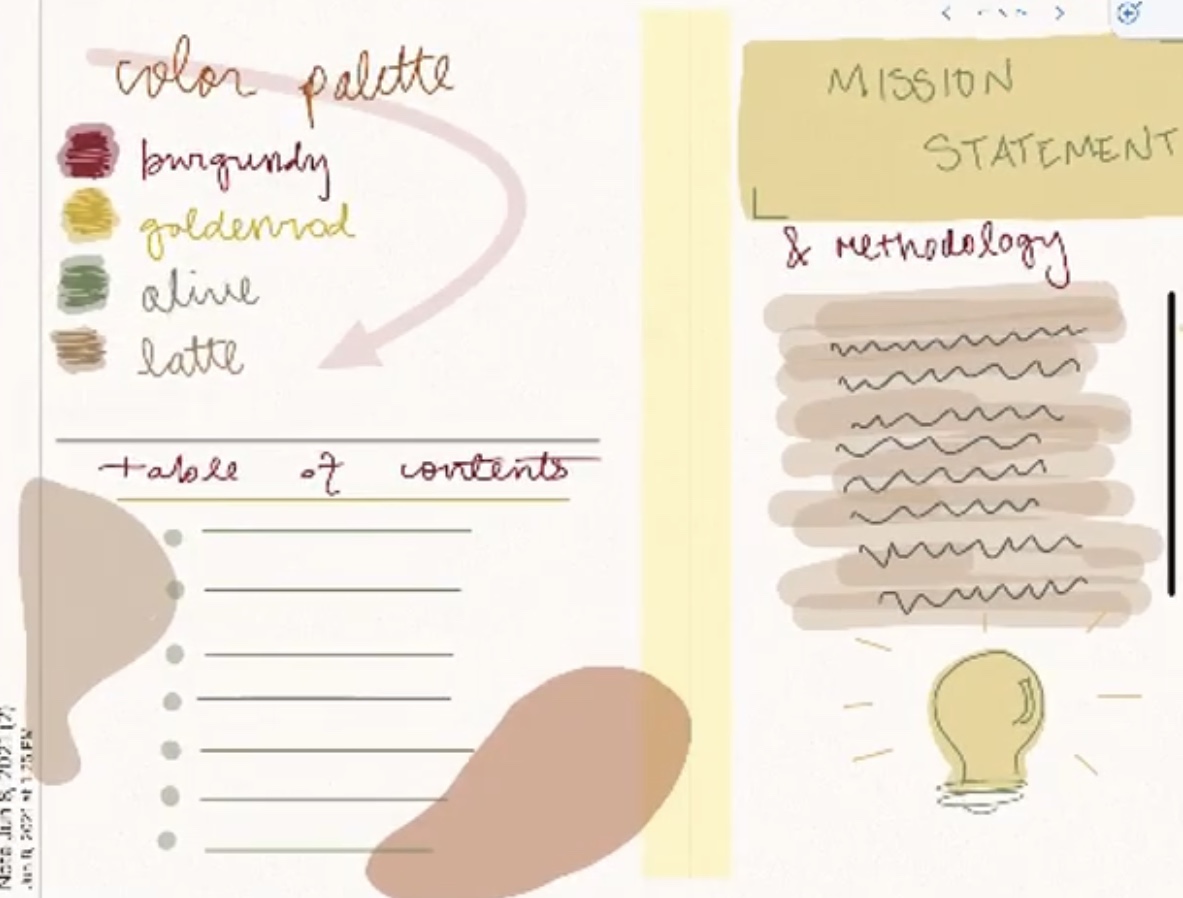 color palette
burgundy
goldenrod
olive
latte
table of contents
MISSION
STATEMENT
& methodology
Note Jun 8, 2021 (2)
Jun 8, 2021 at 1:25 PM